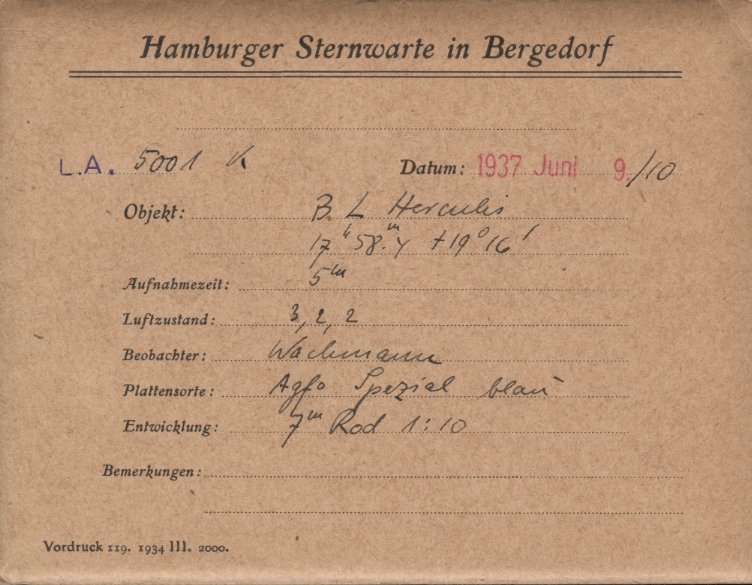 Hamburger Sternwarte in Bergedorf
L.A. 5001 K Datum: 1937 Juni 9./10
Objekt: B L Herculis
17ʰ58ᵐ.4 +19°16'
Aufnahmezeit: 5ᵐ
Luftzustand: 3, 2, 2
Beobachter: Wachmann
Plattensorte: Agfa Spezial blau
Entwicklung: 7ᵐ Rod 1:10
Bemerkungen:
Vordruck 119. 1934 III. 2000.